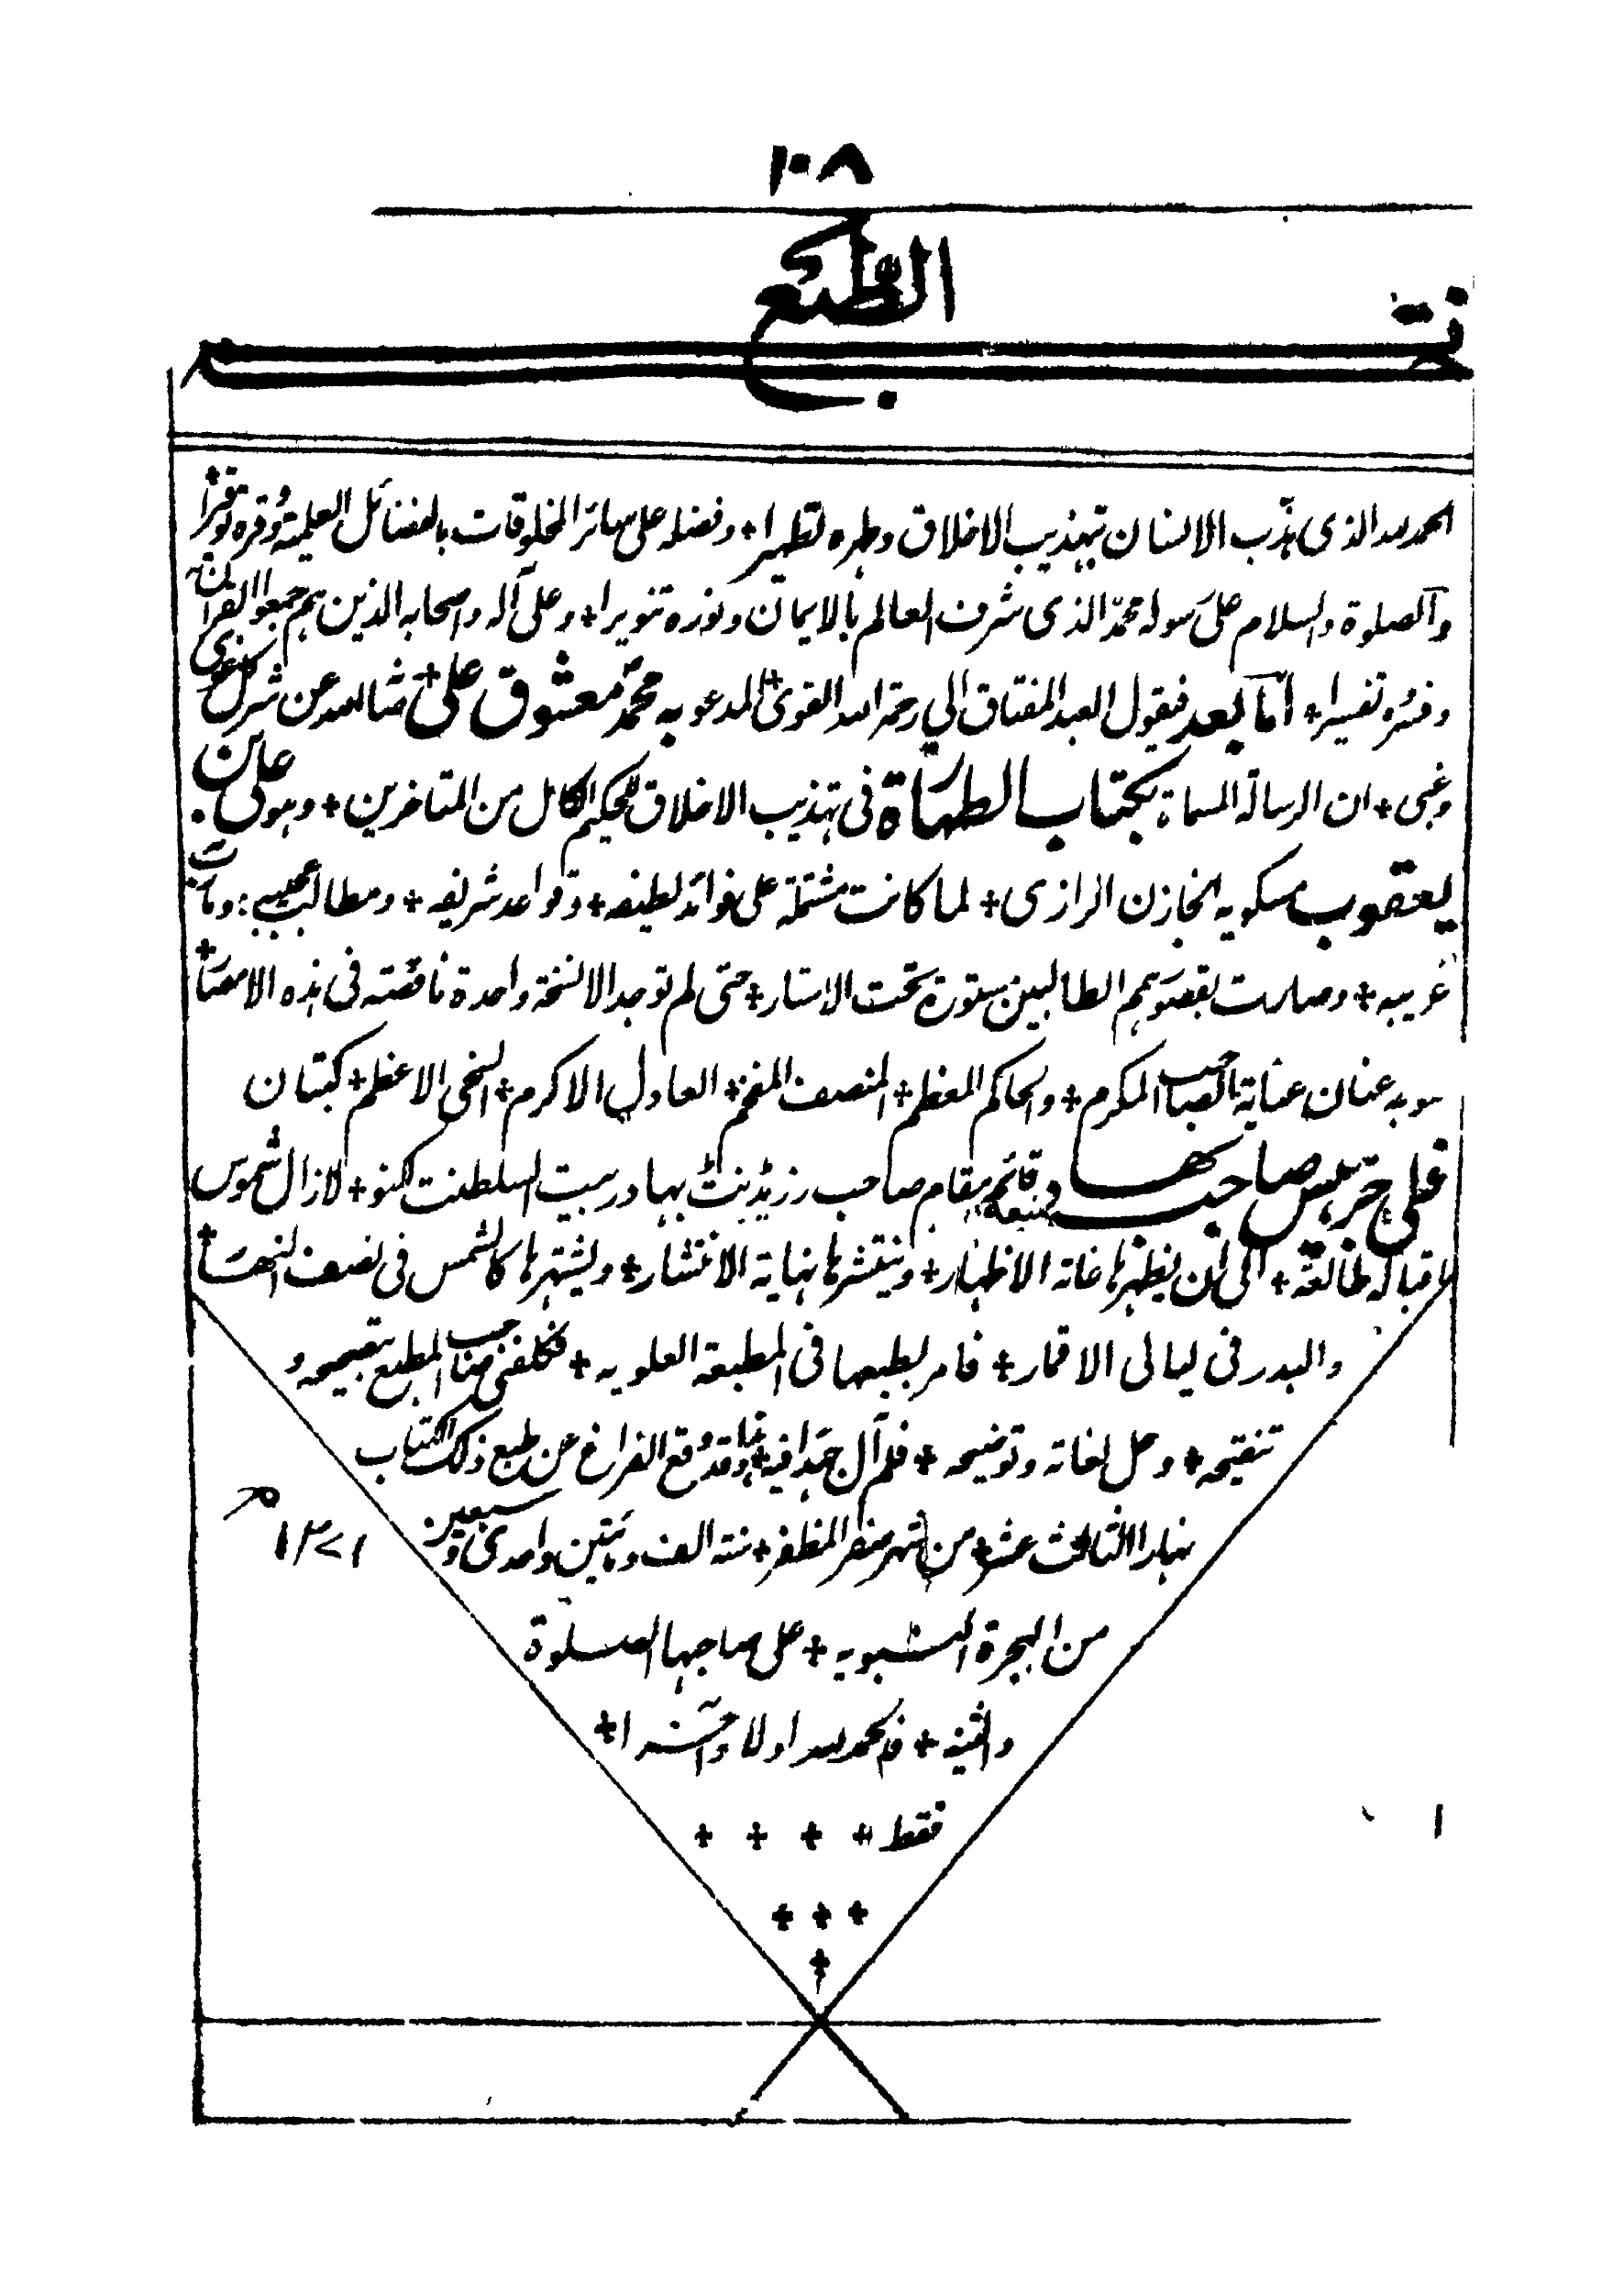 ١٠٨
الطبع
الحمد لله الذى هذب الانسان بتهذيب الاخلاق وطهره تطهيرا + وفضله على سائر المخلوقات بالفضائل العلمية ووقره توقيرا
والصلوة والسلام على رسوله محمد الذى شرف العالم بالايمان ونوره تنويرا + وعلى آله واصحابه الذين هم جمعوا القرآن
وفسره تفسيرا + اما بعد فيقول العبد المفتاق الي رحمة الله القوى المدعو به محمد معشوق على + صانه الله عن شر كل غوى
وغبى + ان الرسالة المسماة بكتاب الطهارة فى تهذيب الاخلاق للحكيم الكامل من المتاخرين + وهو على بن
يعقوب مسكويه الخازن الرازى + لما كانت مشتملة على فوائد لطيفه + وقواعد شريفه + ومطالب عجيبه
غريبه + وصارت بقصور همم الطالبين مستورة تحت الاستار + حتى لم توجد الا نسخة واحدة ناقصته فى هذه الامصار +
عنان عناية الصاحب المكرم + والحاكم المعظم + المنصف المفخم + العادل الاكرم + السخى الاعظم + كبتان
صاحب بهادر قائم مقام صاحب رزيڈنٹ بهادر ببيت السلطنت لكهنو + لازال شموس
اقباله طالعة + الى ان يظهرها غاية الاظهار + وينتشرها نهاية الانتشار + ويشتهرها كالشمس فى نصف النهار +
والبدر فى ليالى الاقمار + فامر بطبعها فى المطبعة العلويه + فكلفنى صاحب المطبع بتصحيحه و
تنقيحه + وحل لغاته وتوضيحه + فلم آل جهدا فيه + وقد وقع الفراغ عن طبع ذلك الكتاب
نهار الثالث عشر + من شهر صفر المظفر + سنة الف ومئتين واحدى وسبعين
١٢٧١ ه
من الهجرة النبويه + على صاحبها الصلوة
والتحيه + فالحمد لله اولا وآخرا +
فقط + + + +
+ + +
+